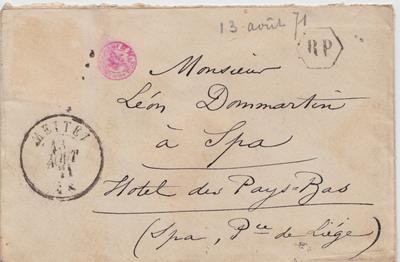 13 août 71
RP
Monsieur
Léon Dommartin
à Spa
METTET
13
AOUT
71
Hotel des Pays-Bas
(Spa, Pce de Liége)